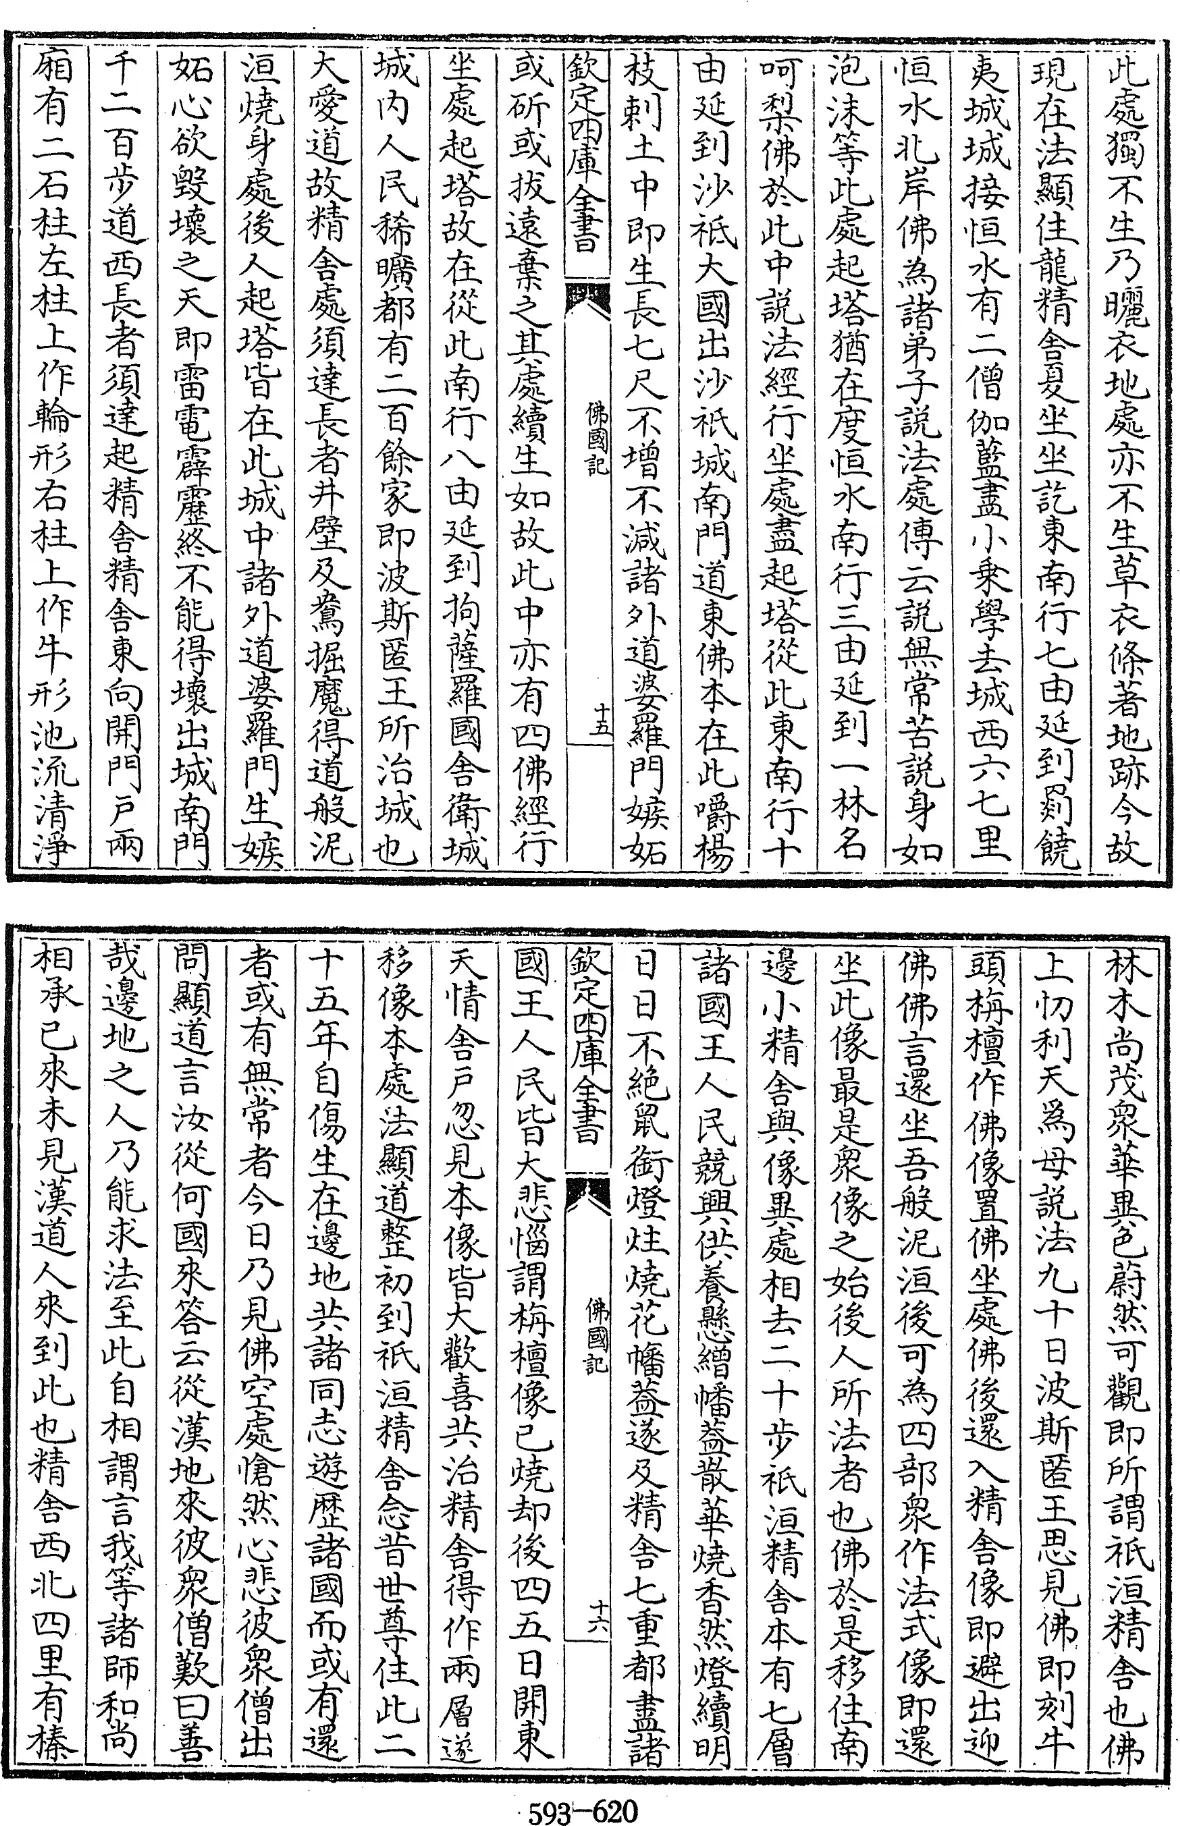 此處獨不生乃曬衣地處亦不生草衣條著地跡今故
現在法顯住龍精舍夏坐坐訖東南行七由延到罽饒
夷城城接恒水有二僧伽藍盡小乗學去城西六七里
恒水北岸佛為諸弟子説法處傳云説無常苦説身如
泡沫等此處起塔猶在度恒水南行三由延到一林名
呵梨佛於此中説法經行坐處盡起塔從此東南行十
由延到沙祇大國出沙祇城南門道東佛本在此嚼楊
枝刺土中即生長七尺不增不減諸外道婆羅門嫉妬
欽定四庫全書
佛國記
十五
或斫或拔遠棄之其處續生如故此中亦有四佛經行
坐處起塔故在從此南行八由延到拘薩羅國舍衛城
城内人民稀曠都有二百餘家即波斯匿王所治城也
大愛道故精舍處須達長者井壁及鴦掘魔得道般泥
洹燒身處後人起塔皆在此城中諸外道婆羅門生嫉
妬心欲毁壞之天即雷電霹靂終不能得壞出城南門
千二百步道西長者須達起精舍精舍東向開門戶兩
廂有二石柱左柱上作輪形右柱上作牛形池流清淨
林木尚茂衆華異色蔚然可觀即所謂祇洹精舍也佛
上忉利天為母説法九十日波斯匿王思見佛即刻牛
頭栴檀作佛像置佛坐處佛後還入精舍像即避出迎
佛佛言還坐吾般泥洹後可為四部衆作法式像即還
坐此像最是衆像之始後人所法者也佛於是移住南
邊小精舍與像異處相去二十步祇洹精舍本有七層
諸國王人民競興供養懸繒幡蓋散華燒香然燈續明
日日不絶鼠銜燈炷燒花幡蓋遂及精舍七重都盡諸
欽定四庫全書
佛國記
十六
國王人民皆大悲惱謂栴檀像已燒却後四五日開東
天情舍戶忽見本像皆大歡喜共治精舍得作兩層遂
移像本處法顯道整初到祇洹精舍念昔世尊住此二
十五年自傷生在邊地共諸同志遊歴諸國而或有還
者或有無常者今日乃見佛空處愴然心悲彼衆僧出
問顯道言汝從何國來答云從漢地來彼衆僧歎曰善
哉邊地之人乃能求法至此自相謂言我等諸師和尚
相承已來未見漢道人來到此也精舍西北四里有榛
593-620